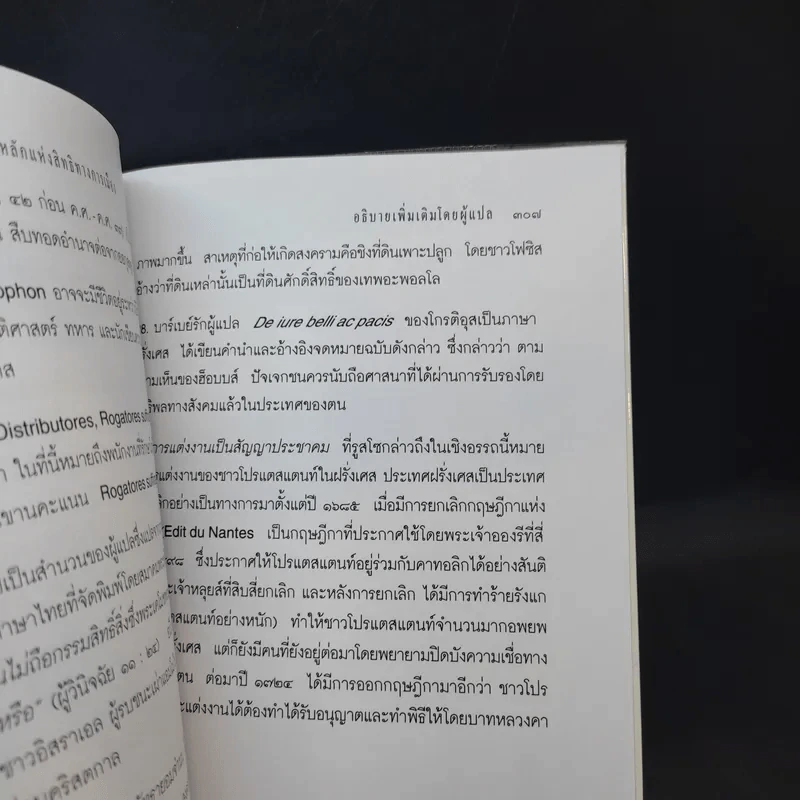 หลักแห่งสิทธิทางการเมือง
๔๒ ก่อน ค.ศ.-ค.ศ. ๓๗
สืบทอดอำนาจต่อจาก
ophon อาจจะมีชีวิตอยู่ระหว่าง
ติศาสตร์ ทหาร และนักเขียน
ส
Distributores, Rogatores
ในที่นี้หมายถึงพนักงานที่
ขานคะแนน Rogatores
เป็นสำนวนของผู้แปลซึ่งแปลจาก
าษาไทยที่จัดพิมพ์โดยสมาคม
นไม่ถือกรรมสิทธิ์สิ่งซึ่งพระ
หรือ" (ผู้วินิจฉัย ๑๑ : ๒๔)
ชาวอิสราเอล ผู้รบชนะเผ่า
นคริสตกาล
อธิบายเพิ่มเติมโดยผู้แปล ๓๐๗
ภาพมากขึ้น สาเหตุที่ก่อให้เกิดสงครามคือชิงที่ดินเพาะปลูก โดยชาวโฟซิส
อ้างว่าที่ดินเหล่านั้นเป็นที่ดินศักดิ์สิทธิ์ของเทพอะพอลโล
8. บาร์เบย์รักผู้แปล De iure belli ac pacis ของโกรติอุสเป็นภาษา
รั่งเศส ได้เขียนคำนำและอ้างอิงจดหมายฉบับดังกล่าว ซึ่งกล่าวว่า ตาม
วามเห็นของฮ็อบบส์ ปัจเจกชนควรนับถือศาสนาที่ได้ผ่านการรับรองโดย
ธิพลทางสังคมแล้วในประเทศของตน
การแต่งงานเป็นสัญญาประชาคม ที่รูสโซกล่าวถึงในเชิงอรรถนี้หมาย
รแต่งงานของชาวโปรแตสแตนท์ในฝรั่งเศส ประเทศฝรั่งเศสเป็นประเทศ
ลิกอย่างเป็นทางการมาตั้งแต่ปี ๑๖๘๕ เมื่อมีการยกเลิกกฤษฎีกาแห่ง
Edit du Nantes เป็นกฤษฎีกาที่ประกาศใช้โดยพระเจ้าอองรีที่สี่
๙๘ ซึ่งประกาศให้โปรแตสแตนท์อยู่ร่วมกับคาทอลิกได้อย่างสันติ
ะเจ้าหลุยส์ที่สิบสี่ยกเลิก และหลังการยกเลิก ได้มีการทำร้ายรังแก
ตสแตนท์อย่างหนัก) ทำให้ชาวโปรแตสแตนท์จำนวนมากอพยพ
งเศส แต่ก็ยังมีคนที่ยังอยู่ต่อมาโดยพยายามปิดบังความเชื่อทาง
ตน ต่อมาปี ๑๗๒๔ ได้มีการออกกฤษฎีกามาอีกว่า ชาวโปร
ะแต่งงานได้ต้องทำได้รับอนุญาตและทำพิธีให้โดยบาทหลวงคา